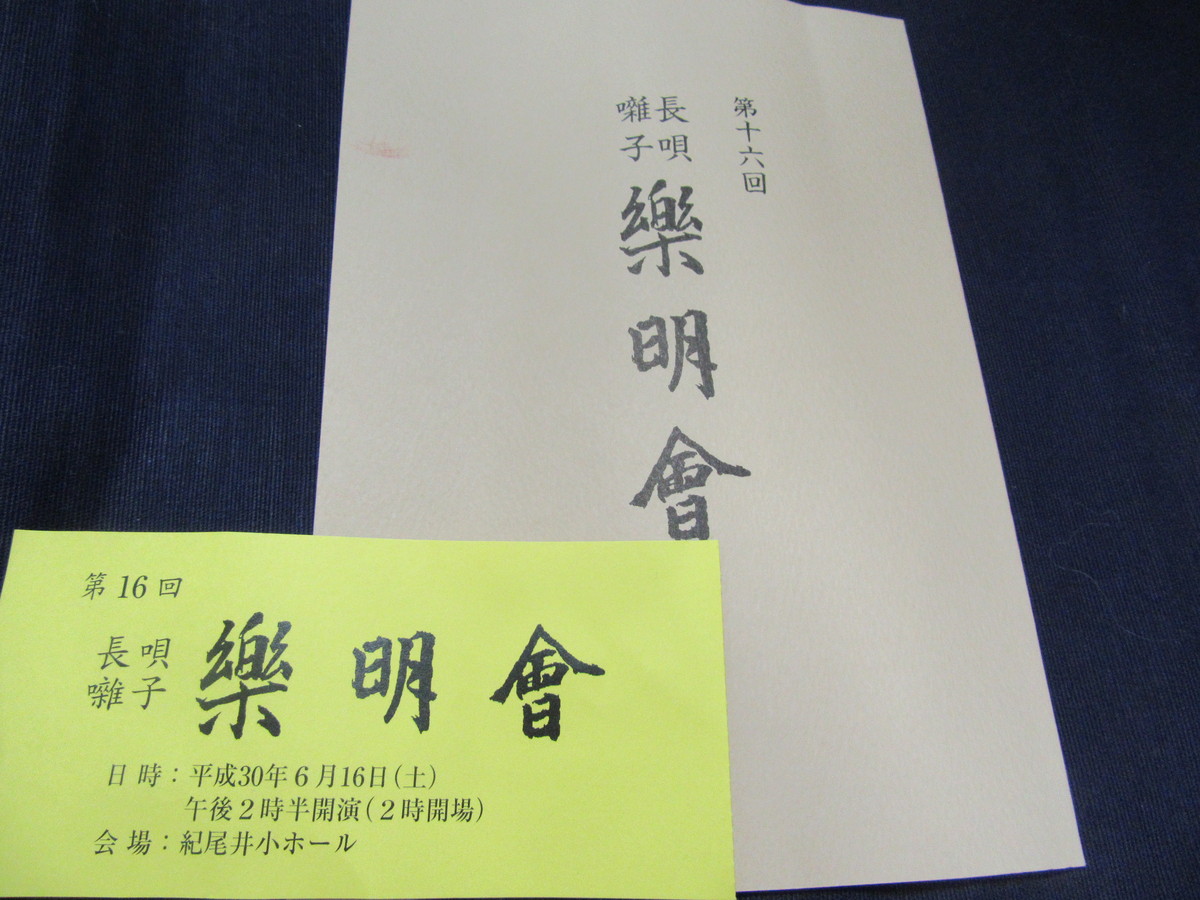 第十六回
長唄
囃子
樂明會
第16回
長唄
囃子
樂明會
日時：平成30年6月16日(土)
午後2時半開演(2時開場)
会場：紀尾井小ホール